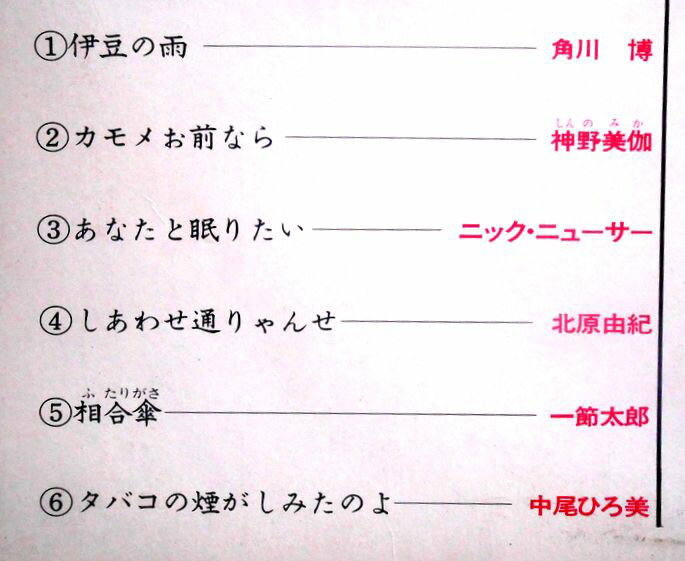 ①伊豆の雨 角川 博
しんの みか
②カモメお前なら 神野美伽
③あなたと眠りたい ニック・ニューサー
④しあわせ通りゃんせ 北原由紀
ふたりがさ
⑤相合傘 一節太郎
⑥タバコの煙がしみたのよ 中尾ひろ美